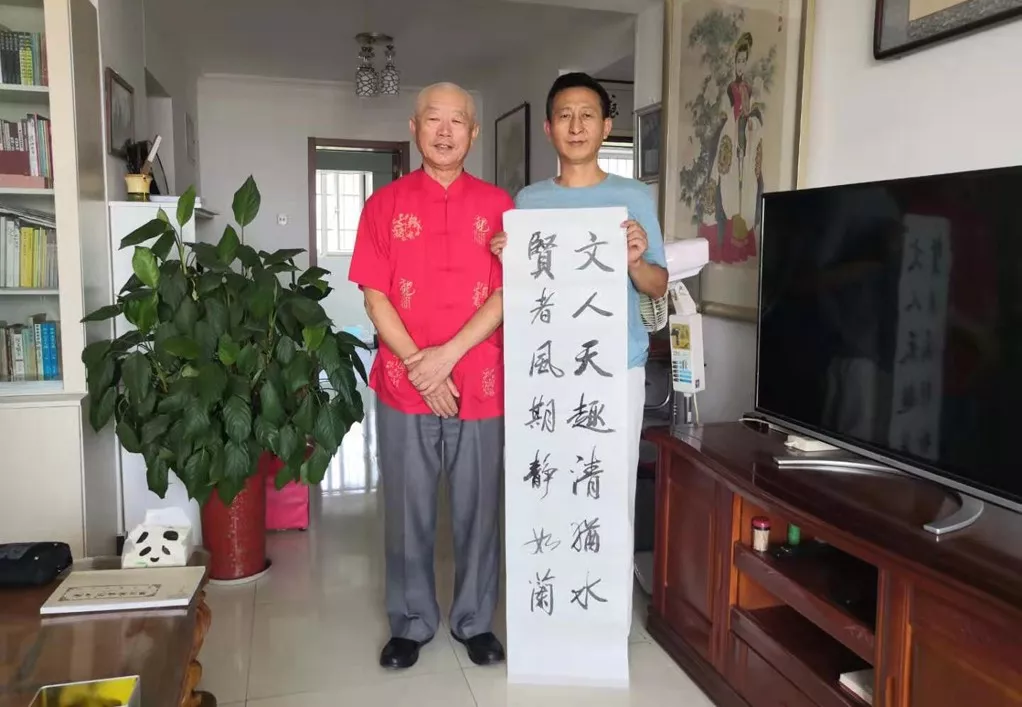 文人天趣清猶水
賢者風期静如蘭